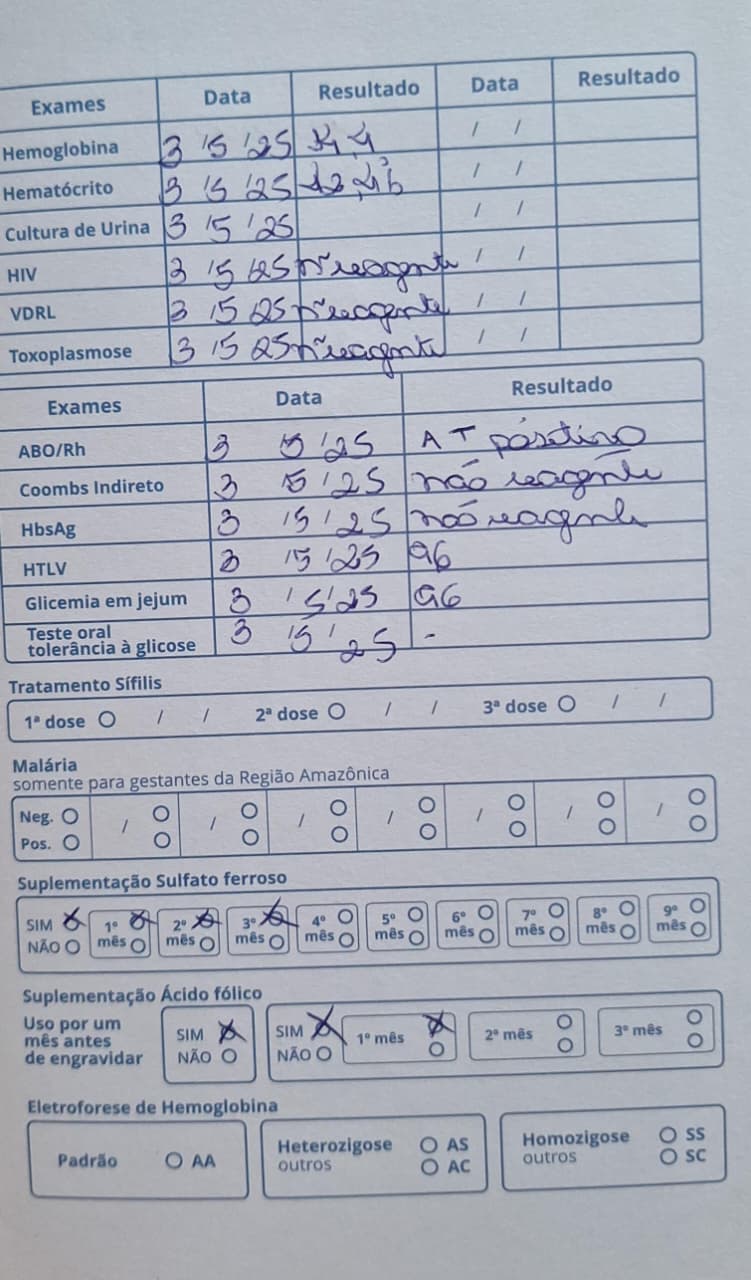 Exames Data Resultado Data Resultado
Hemoglobina 3 /5 /25 / /
Hematócrito 3 /5 /25 / /
Cultura de Urina 3 /5 /25 / /
HIV 3 /5 /25 nº reagente / /
VDRL 3 /5 25 nº reagente / /
Toxoplasmose 3 /5 25 nº reagente / /
Exames Data Resultado
ABO/Rh 3 /5 /25 A
Coombs Indireto 3 /5 /25 não reagente
HbsAg 3 /5 /25 não reagente
HTLV 3 /5 /25 96
Glicemia em jejum 3 /5/25 96
Teste oral
tolerância à glicose 3 /5 / 25 -
Tratamento Sífilis
1ª dose / / 2ª dose / / 3ª dose / /
Malária
somente para gestantes da Região Amazônica
Neg. / / / / / / /
Pos.
Suplementação Sulfato ferroso
SIM 1º 2º 3º 4º 5º 6º 7º 8º 9º
NÃO mês mês mês mês mês mês mês mês mês
Suplementação Ácido fólico
Uso por um
mês antes
de engravidar
SIM
NÃO
SIM
NÃO
1º mês 2º mês 3º mês
Eletroforese de Hemoglobina
Padrão AA
Heterozigose AS
outros AC
Homozigose SS
outros SC